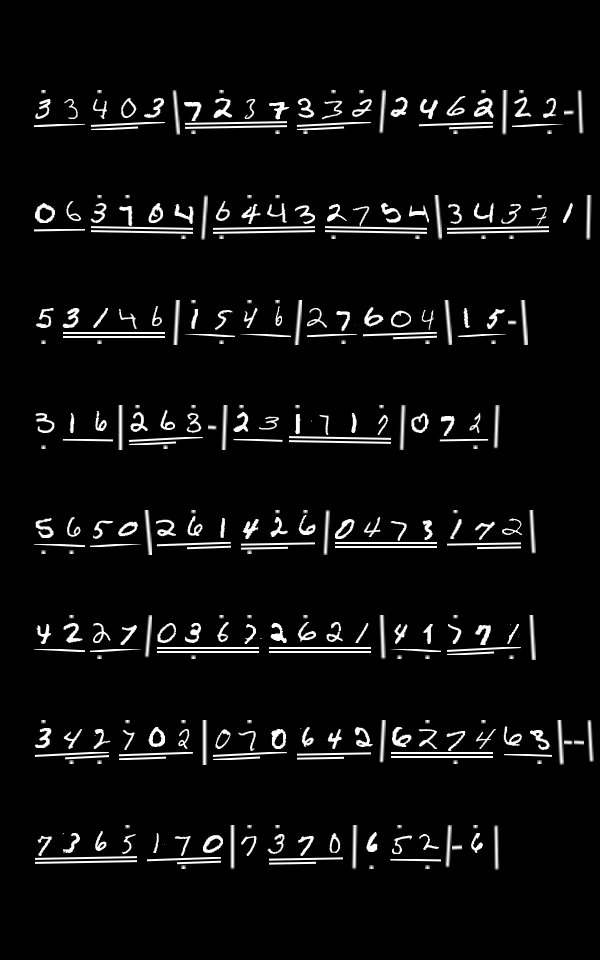 33403|7237332|2462|22-|
063704|64432754|34371|
53146|1546|27604|15-|
316|263-|231717|072|
5650|261426|0473172|
4227|03672621|41771|
342702|070642|627463|--|
7365170|7370|652|-6|